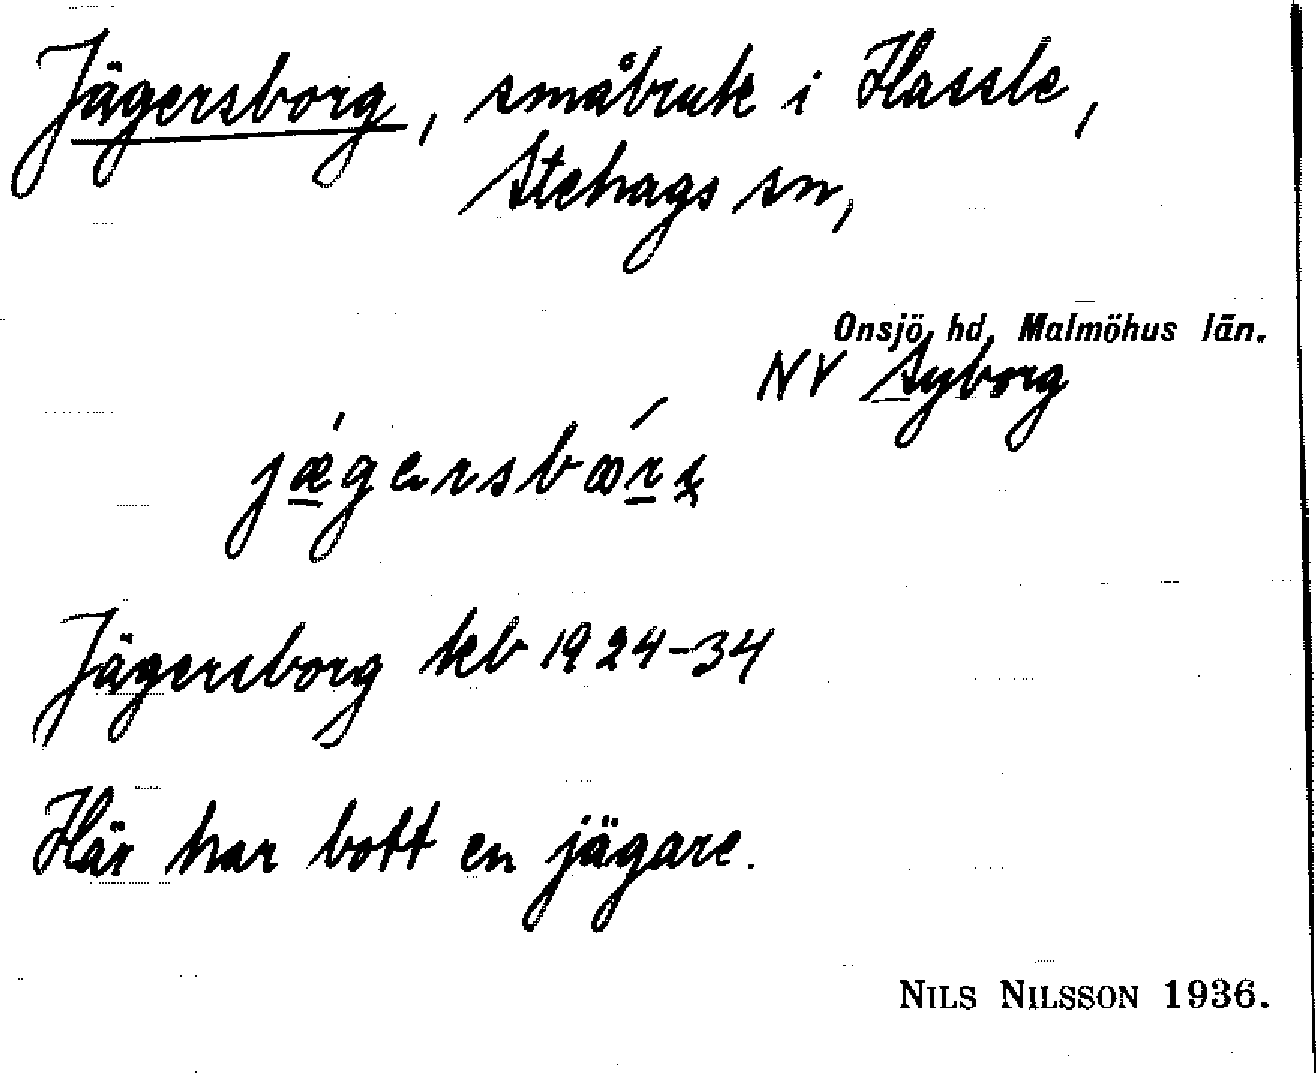 Jägersborg, småbruk i Hassle,
Stehags sn,
Onsjö hd, Malmöhus län.
NV Syborg
Jägersborg kb 1924-34
Här har bott en jägare.
NILS NILSSON 1936.